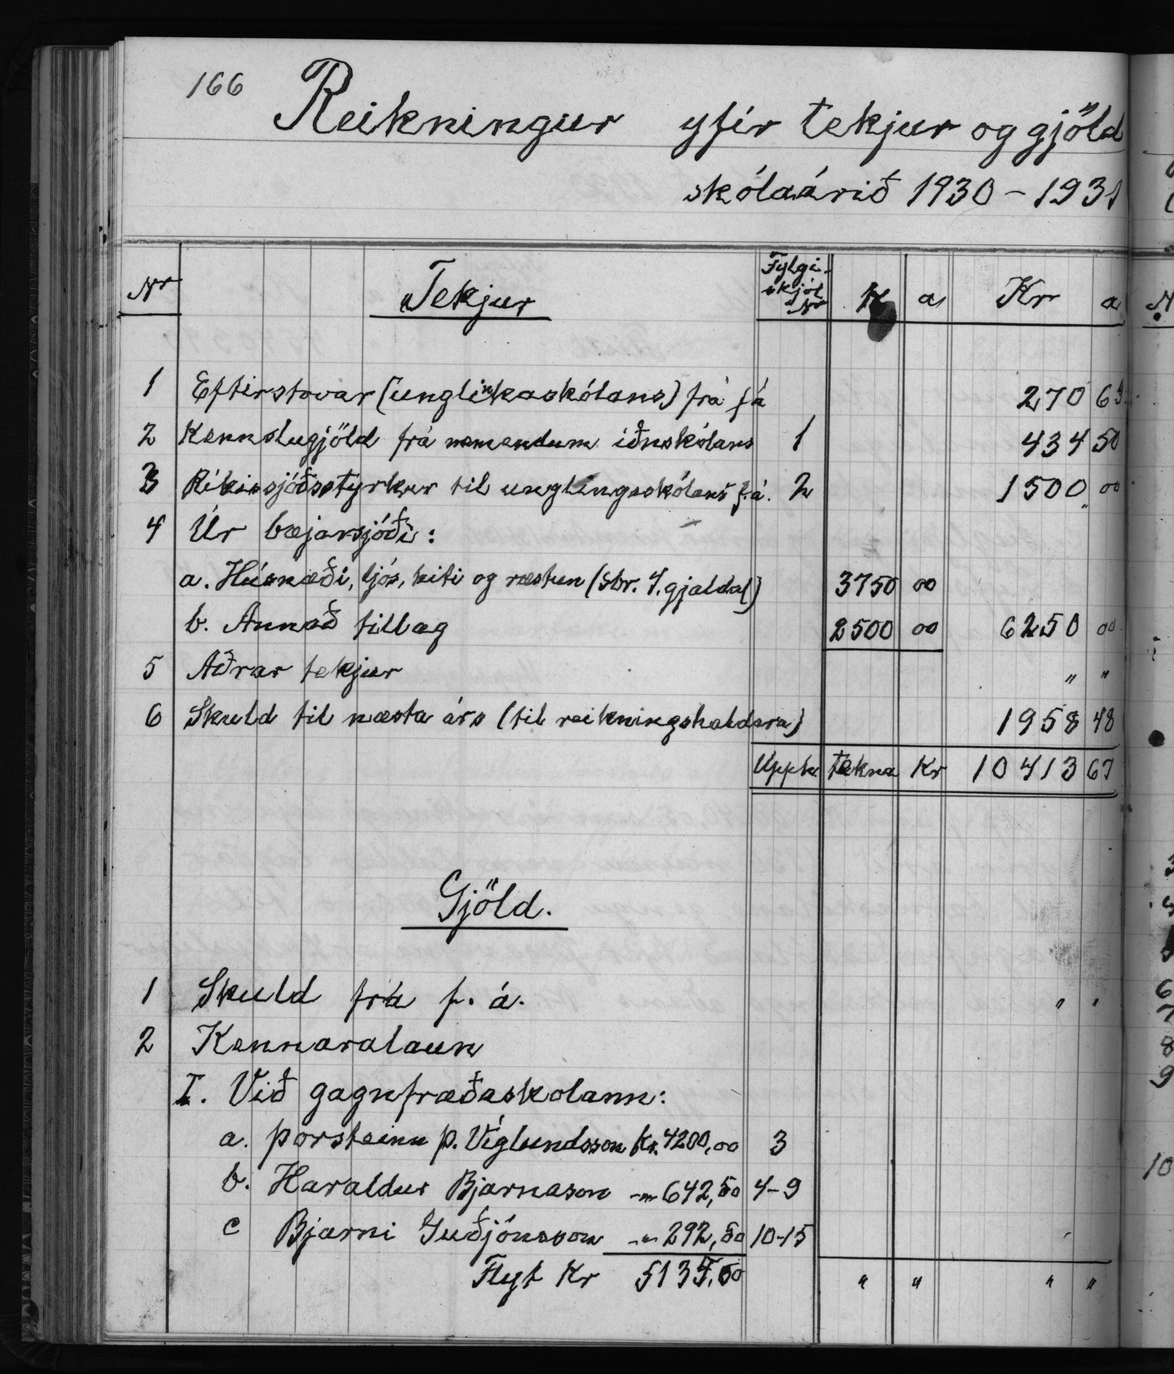 166
Reikningur yfir tekjur og gjöld
skólaárið 1930 - 1931
Nr Tekjur Fylgi-skjöl Nr Kr a Kr a
1 Eftirstöðvar (unglingaskólans) frá f á 270 65
2 Kennslugjöld frá nemendum iðnskólans 1 434 50
3 Ríkissjóðsstyrkur til unglingaskólans f. á. 2 1500 00
4 Úr bæjarsjóði:
a. Húsnæði, ljós, hiti og ræstun (sbr. 4. gjaldal) 3750 00
b. Annað tillag 2500 00 6250 00
5 Aðrar tekjur " "
6 Skuld til næsta árs (til reikningshaldara) 1958 48
Upph. tekna Kr 10413 63
Gjöld.
1 Skuld frá f. á. " "
2 Kennaralaun
I. Við gagnfræðaskolann:
a. Þorsteinn Þ. Víglundsson Kr. 4200,00 3
b. Haraldur Bjarnason -"- 642,50 4-9
c Bjarni Guðjónsson -"- 292,50 10-15
Flyt Kr 5135,00 " " " "